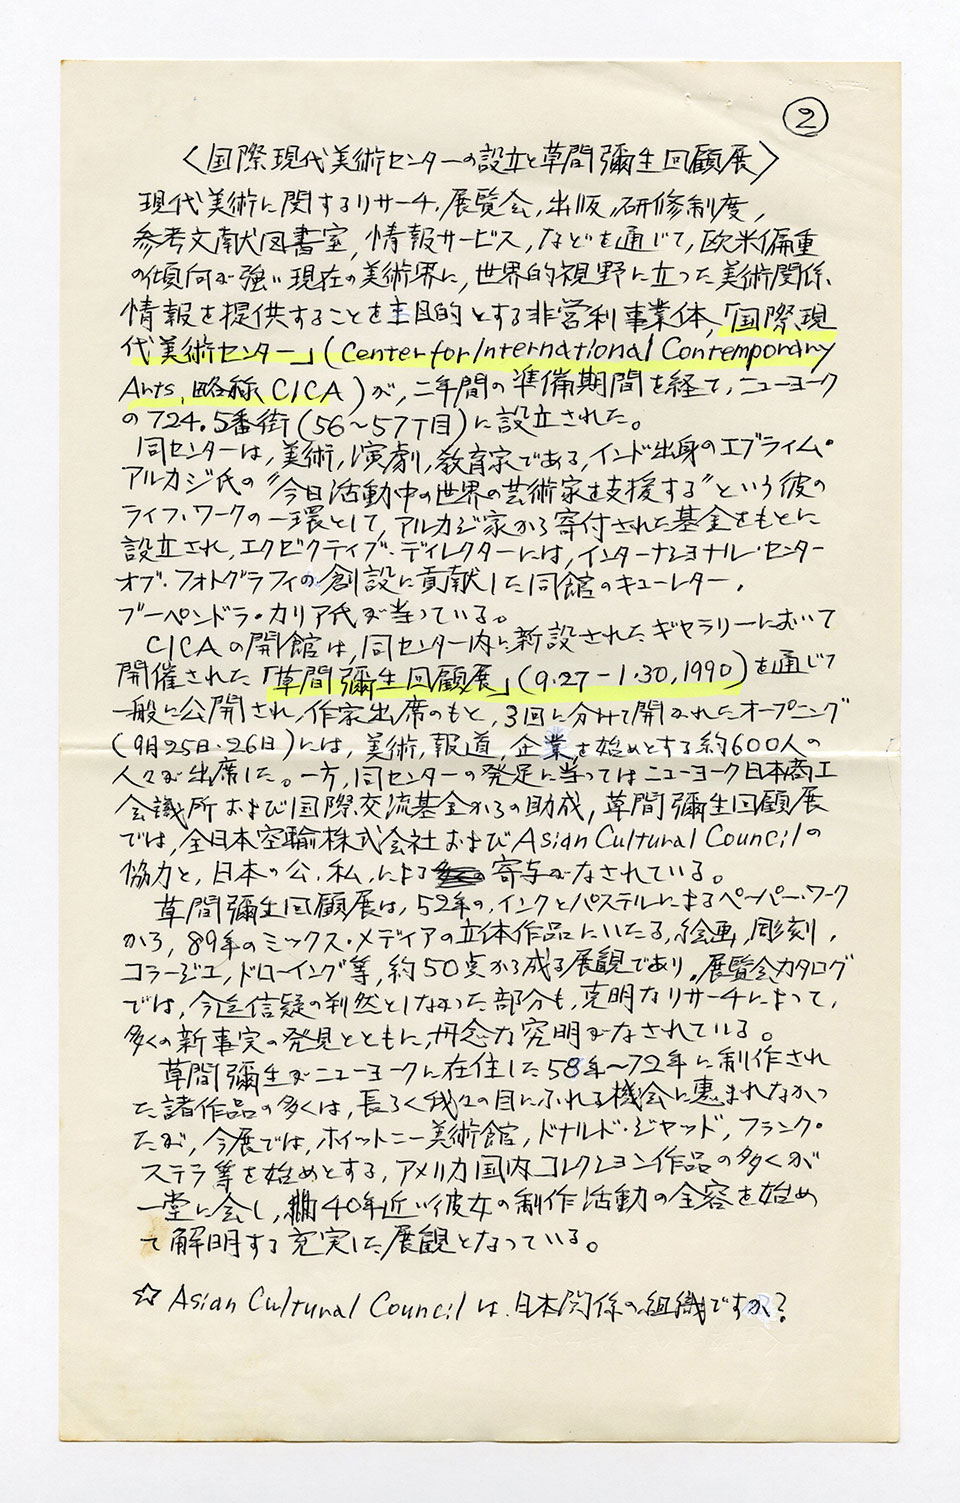 ②
〈国際現代美術センターの設立と草間彌生回顧展〉
現代美術に関するリサーチ、展覧会、出版、研修制度、
参考文献図書室、情報サービス、などを通じて、欧米偏重
の傾向が強い現在の美術界に、世界的視野に立った美術関係、
情報を提供することを主目的とする非営利事業体、「国際現
代美術センター」(Center for International Contemporary
Arts、略称 CICA)が、二年間の準備期間を経て、ニューヨーク
の724.5番街(56〜57丁目)に設立された。
同センターは、美術、演劇、教育家である、インド出身のエブライム・
アルカジ氏の〝今日活動中の世界の芸術家を支援する〟という彼の
ライフ・ワークの一環として、アルカジ家から寄付された基金をもとに
設立され、エクゼクティブ・ディレクターには、インターナショナル・センター
オブ・フォトグラフィの創設に貢献した同館のキューレター、
ブーペンドラ・カリア氏が当っている。
CICAの開館は、同センター内に新設されたギャラリーにおいて
開催された「草間彌生回顧展」(9.27-1.30,1990)を通じて
一般に公開され、作家出席のもと、3回に分けて開かれたオープニング
(9月25日・26日)には、美術、報道、企業を始めとする約600人の
人々が出席した。一方、同センターの発足に当ってはニューヨーク日本商工
会議所および国際交流基金からの助成、草間彌生回顧展
では、全日本空輸株式会社およびAsian Cultural Councilの
協力と、日本の公、私、による寄与がなされている。
草間彌生回顧展は、52年の、インクとパステルによるペーパー・ワーク
から、89年のミックス・メディアの立体作品にいたる、絵画、彫刻、
コラージュ、ドローイング等、約50点から成る展観であり、展覧会カタログ
では、今迄信疑の判然としなかった部分も、克明なリサーチによって、
多くの新事実の発見とともに、丹念な究明がなされている。
草間彌生がニューヨークに在住した58年〜72年に制作され
た諸作品の多くは、長らく我々の目にふれる機会に恵まれなかっ
たが、今展では、ホイットニー美術館、ドナルド・ジャッド、フランク・
ステラ等を始めとする、アメリカ国内コレクション作品の多くが
一堂に会し、40年近い彼女の制作活動の全容を始め
て解明する充実した展観となっている。
☆ Asian Cultural Council は、日本関係の組織ですか?